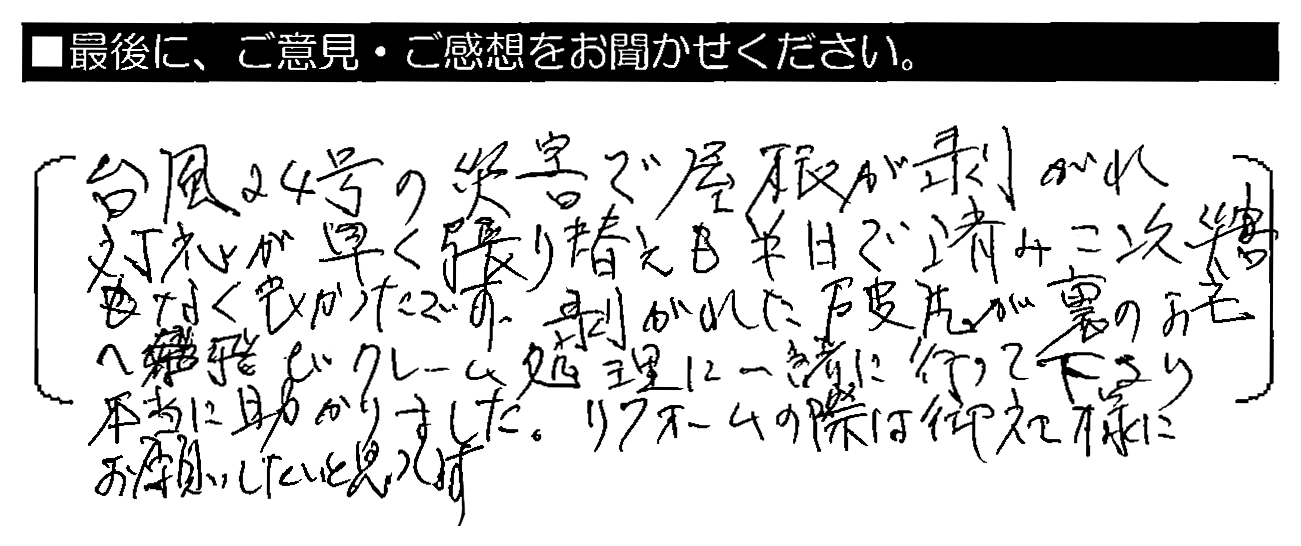 ■最後に、ご意見・ご感想をお聞かせください。
台風24号の災害で屋根が剥がれ
対応が早く張り替えも半日で済み二次災害
もなく良かったです。剥がれた破片が裏のお宅
へ飛びクレーム処理に一緒に行って下さり
本当に助かりました。リフォームの際は御社様に
お願いしたいと思ってます